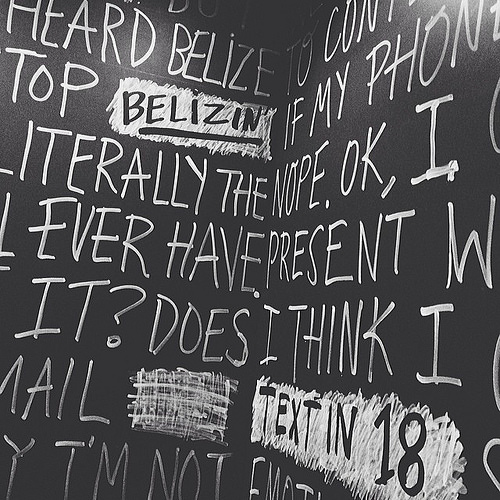 HEARD BELIZE TO CONT
TOP BELIZIN' IF MY PHON
LITERALLY THE NOPE. OK, I
EVER HAVE PRESENT W
IT? DOES I THINK I
MAIL TEXT IN 18
I'M NOT